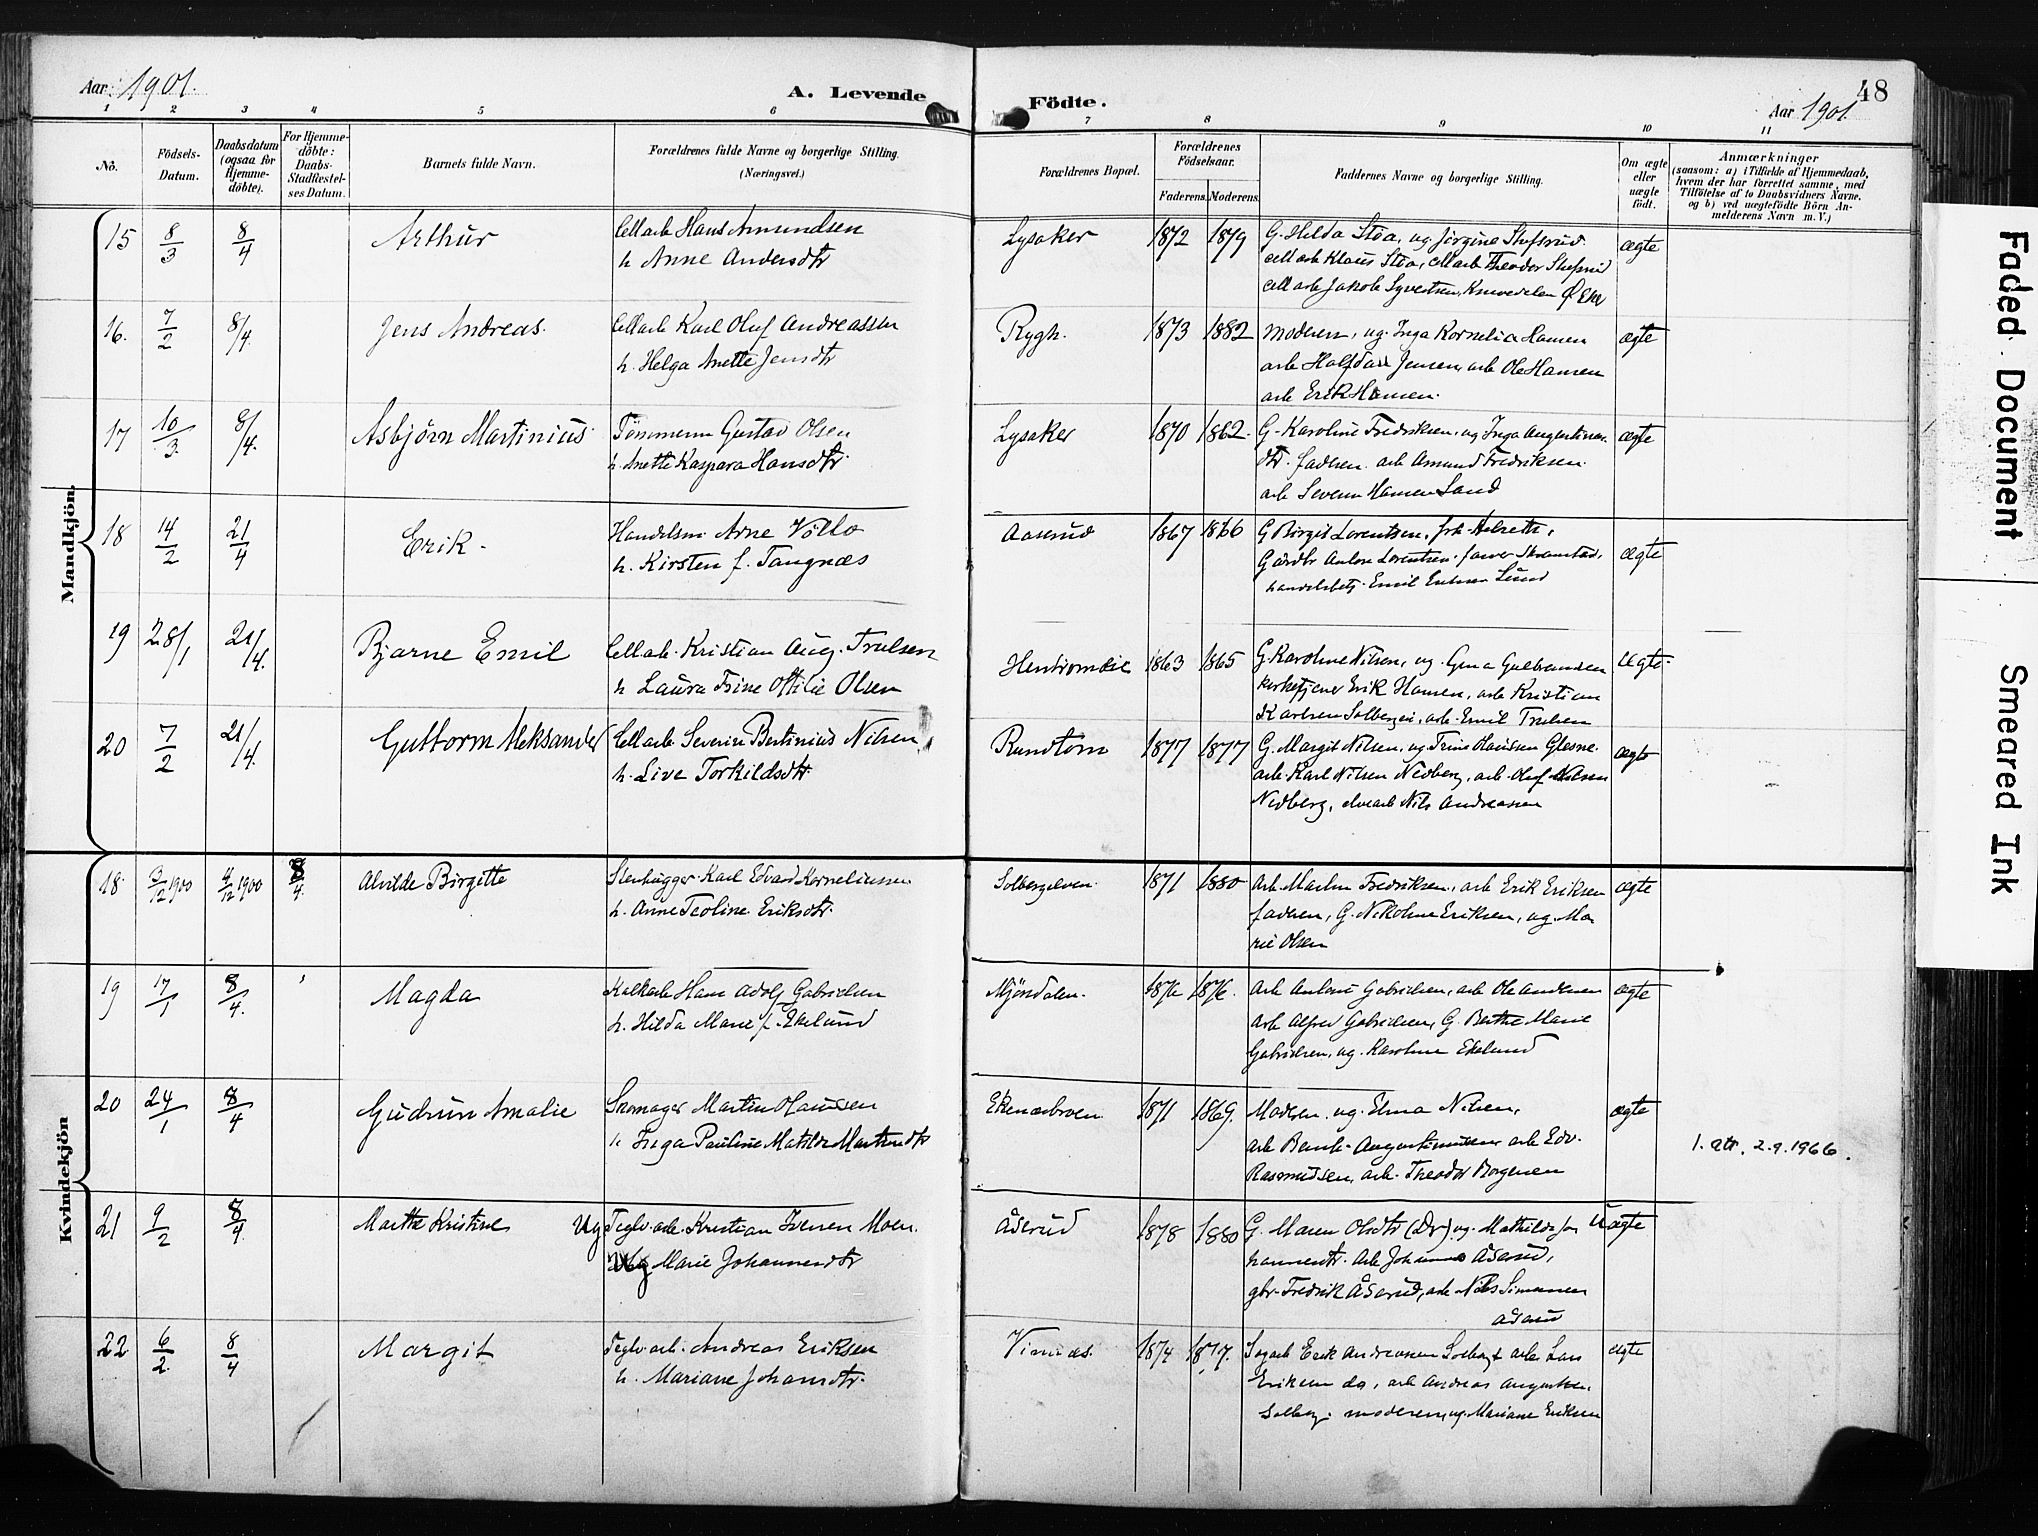 Aar 1901.
A. Levende Födte.
Aar 1901
48
1 2 3 4 5 6 7 8 9 10 11
No.
Födsels-Datum.
Daabsdatum (ogsaa for Hjemme-döbte).
For Hjemme-döbte: Daabs-Stadfæstel-ses Datum.
Barnets fulde Navn.
Forældrenes fulde Navne og borgerlige Stilling. (Næringsvei.)
Forældrenes Bopæl.
Forældrenes Födselsaar.
Faderens.
Moderens.
Faddernes Navne og borgerlige Stilling.
Om ægte eller uægte født.
Anmærkninger
(saasom: a) i Tilfælde af Hjemmedaab, hvem der har forrettet samme, med Tilföielse af to Daabsvidners Navne. og b) ved uægtefödte Börn An-melderens Navn m. V.)
Mandkjön.
15 8/3 8/4 Arthur Cell arb Hans Amundsen Lysaker 1872 1879 G. Hilda Stöa, ug Jörgine ægte
h Anne Andersdtr cell arb Klaus Stöa, cell arb Theodor
cell arb Jakob
16. 7/2 8/4. Jens Andreas. Cell arb Karl Oluf Andreassen Rygh. 1873 1882 Moderen, ug. Inga Kornelia Hansen ægte
h. Helga Anette Jensdtr arb Halfdan Jensen, arb Ole Hansen
arb Erik Hansen.
17 10/3. 8/4. Asbjörn Martinius Tömmerm Gustav Olsen Lysaker 1870 1862. G. Karoline Fredriksen, ug Inga ægte
h. Anette Kaspara Hansdtr. dtr. faderen. arb Amund Fredriksen.
arb Severin Hansen Sand
18 14/2 21/4 Erik. Handelsm Arne Völlo Aaserud 1867 1866 G Birgit Lorentsen, frk
h. Kirsten f. Tangnæs Gårdbr Anton Lorentsen ægte
handelsbetj. Emil Lund
19 28/1 21/4. Bjarne Emil Cell arb. Kristian Aug. Trulsen 1863 1865 G. Karoline Nilsen, ug. Gina Gulbrandsen ægte.
h Laura Trine Ottilie Olsen kirketjener Erik Hansen, arb Kristian
Karlsen, arb. Emil Trulsen
20 7/2 21/4. Guttorm Aleksander Cell arb. Severin Bertinius Nilsen. Rundtom 1877 1877 G. Margit Nilsen, ug Trine Hansen ægte
h. Live Torkildsdtr. arb. Karl Nilsen Nedberg, arb. Oluf Nilsen
Nedberg, elvearb Nils Andreassen
Kvindekjön
18. 3/12 1900 4/12 1900 8/4. Alvilde Birgitte Stenhugger Karl Edvard Korneliussen Solbergelven. 1871 1880 Arb. Martin Fredriksen, arb Erik Eriksen ægte
h. Anne Teoline Eriksdtr. faderen, G. Nikoline Eriksen, ug. Ma
rie Olsen
19 17/1 8/4. Magda Kalkarb Hans Adolf Gabrielsen Mjöndalen. 1876 1876. Arb Anton Gabrielsen, arb Ole Andersen ægte
h. Hilda Marie f. Ekelund Arb Alfred Gabrielsen, G. Berthe Marie
Gabrielsen, ug. Karoline Ekelund
20 24/1 8/4 Gudrun Amalie Skomager Martin Hansen 1871 1869. Moderen. ug. Elma Nilsen, ægte
h Inga Pauline Matilde arb Bernh. Augustinussen arb Edv. 1. atr. 2.9.1966.
Rasmussen, arb. Theodor Borgersen
21 9/2 8/4 Marthe Kristine Ug Teglv. arb. Kristian Iversen Moen. Åserud 1878 1880 G. Maren Olsdtr, ug. Mathilde Jo uægte
Ug Marie Johannesdtr hannesdtr. arb Johannes Åserud,
gbr. Fredrik Åserud, arb Nils Simonsen
Åserud
22 6/2. 8/4 Margit Teglv. arb. Andreas Eriksen Vinnæs. 1874 1877. Sagarb Erik Andreassen Solberg arb Lars ægte
h. Mariane Johansdtr. Eriksen do, arb Andreas
Solberg. moderen, ug. Mariane Eriksen
Faded Document
Smeared Ink